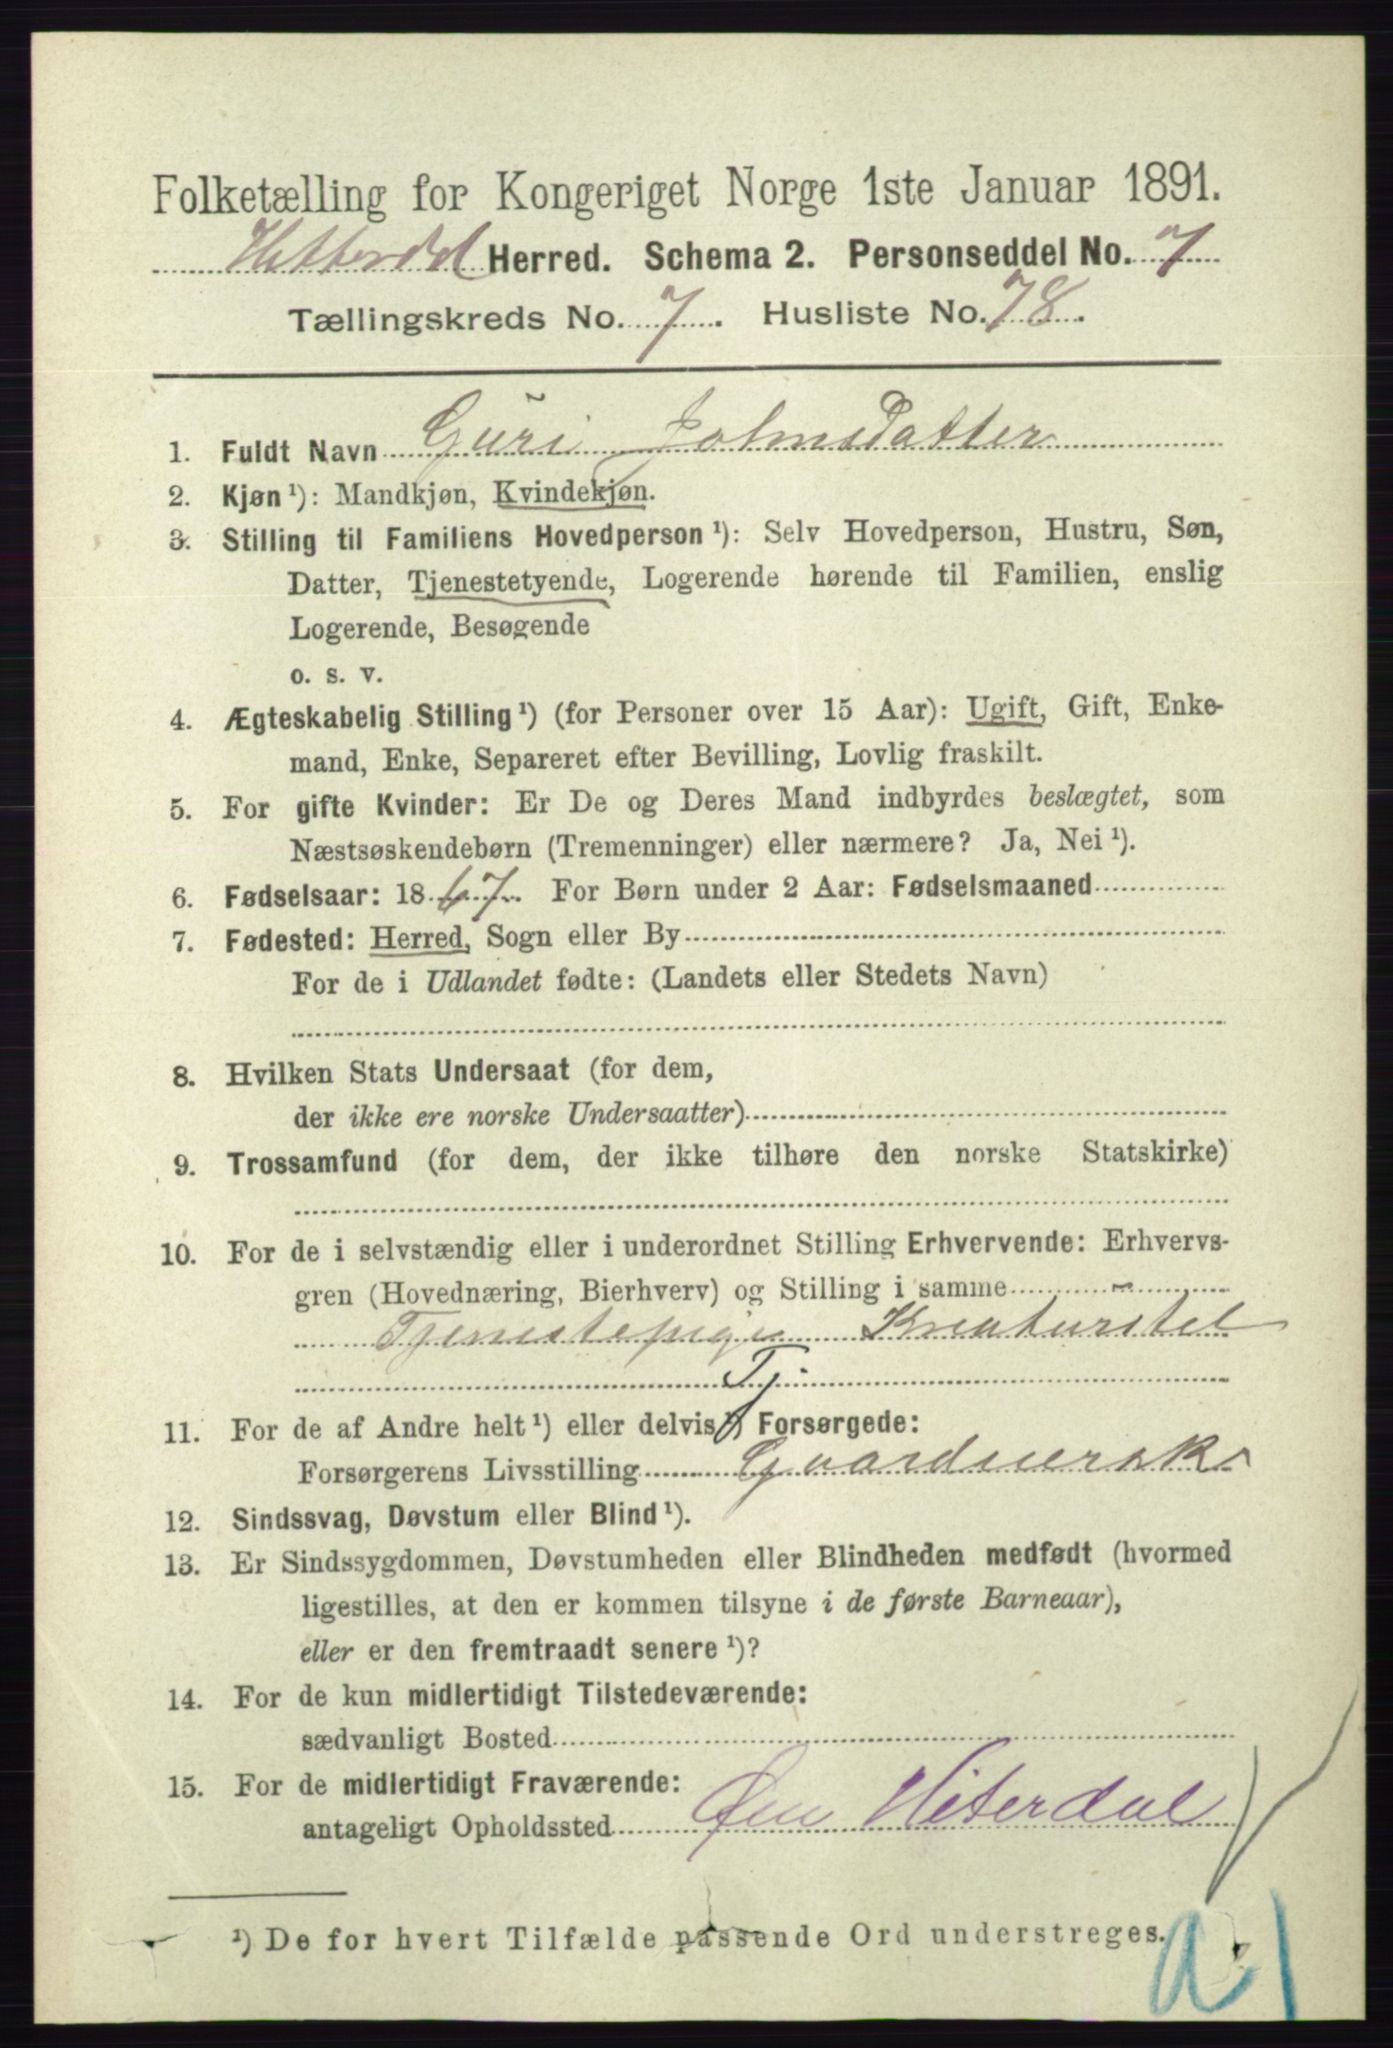 Folketælling for Kongeriget Norge 1ste Januar 1891.
Hitterdal Herred. Schema 2. Personseddel No. 7
Tællingskreds No. 7. Husliste No. 78.
1. Fuldt Navn Guri Johnsdatter
2. Kjøn ¹): Mandkjøn, Kvindekjøn.
3. Stilling til Familiens Hovedperson ¹): Selv Hovedperson, Hustru, Søn,
Datter, Tjenestetyende, Logerende hørende til Familien, enslig
Logerende, Besøgende
o. s. v.
4. Ægteskabelig Stilling ¹) (for Personer over 15 Aar): Ugift, Gift, Enke-
mand, Enke, Separeret efter Bevilling, Lovlig fraskilt.
5. For gifte Kvinder: Er De og Deres Mand indbyrdes beslægtet, som
Næstsøskendebørn (Tremenninger) eller nærmere? Ja, Nei ¹).
6. Fødselsaar: 1867. For Børn under 2 Aar: Fødselsmaaned
7. Fødested: Herred, Sogn eller By
For de i Udlandet fødte: (Landets eller Stedets Navn)
8. Hvilken Stats Undersaat (for dem,
der ikke ere norske Undersaatter)
9. Trossamfund (for dem, der ikke tilhøre den norske Statskirke)
10. For de i selvstændig eller i underordnet Stilling Erhvervende: Erhvervs-
gren (Hovednæring, Bierhverv) og Stilling i samme
Tjenestepige Kreaturstel
Tj
11. For de af Andre helt ¹) eller delvis ¹) Forsørgede:
Forsørgerens Livsstilling
12. Sindssvag, Døvstum eller Blind ¹).
13. Er Sindssygdommen, Døvstumheden eller Blindheden medfødt (hvormed
ligestilles, at den er kommen tilsyne i de første Barneaar),
eller er den fremtraadt senere ¹)?
14. For de kun midlertidigt Tilstedeværende:
sædvanligt Bosted
15. For de midlertidigt Fraværende:
antageligt Opholdssted Øen Hiterdal
¹) De for hvert Tilfælde passende Ord understreges.